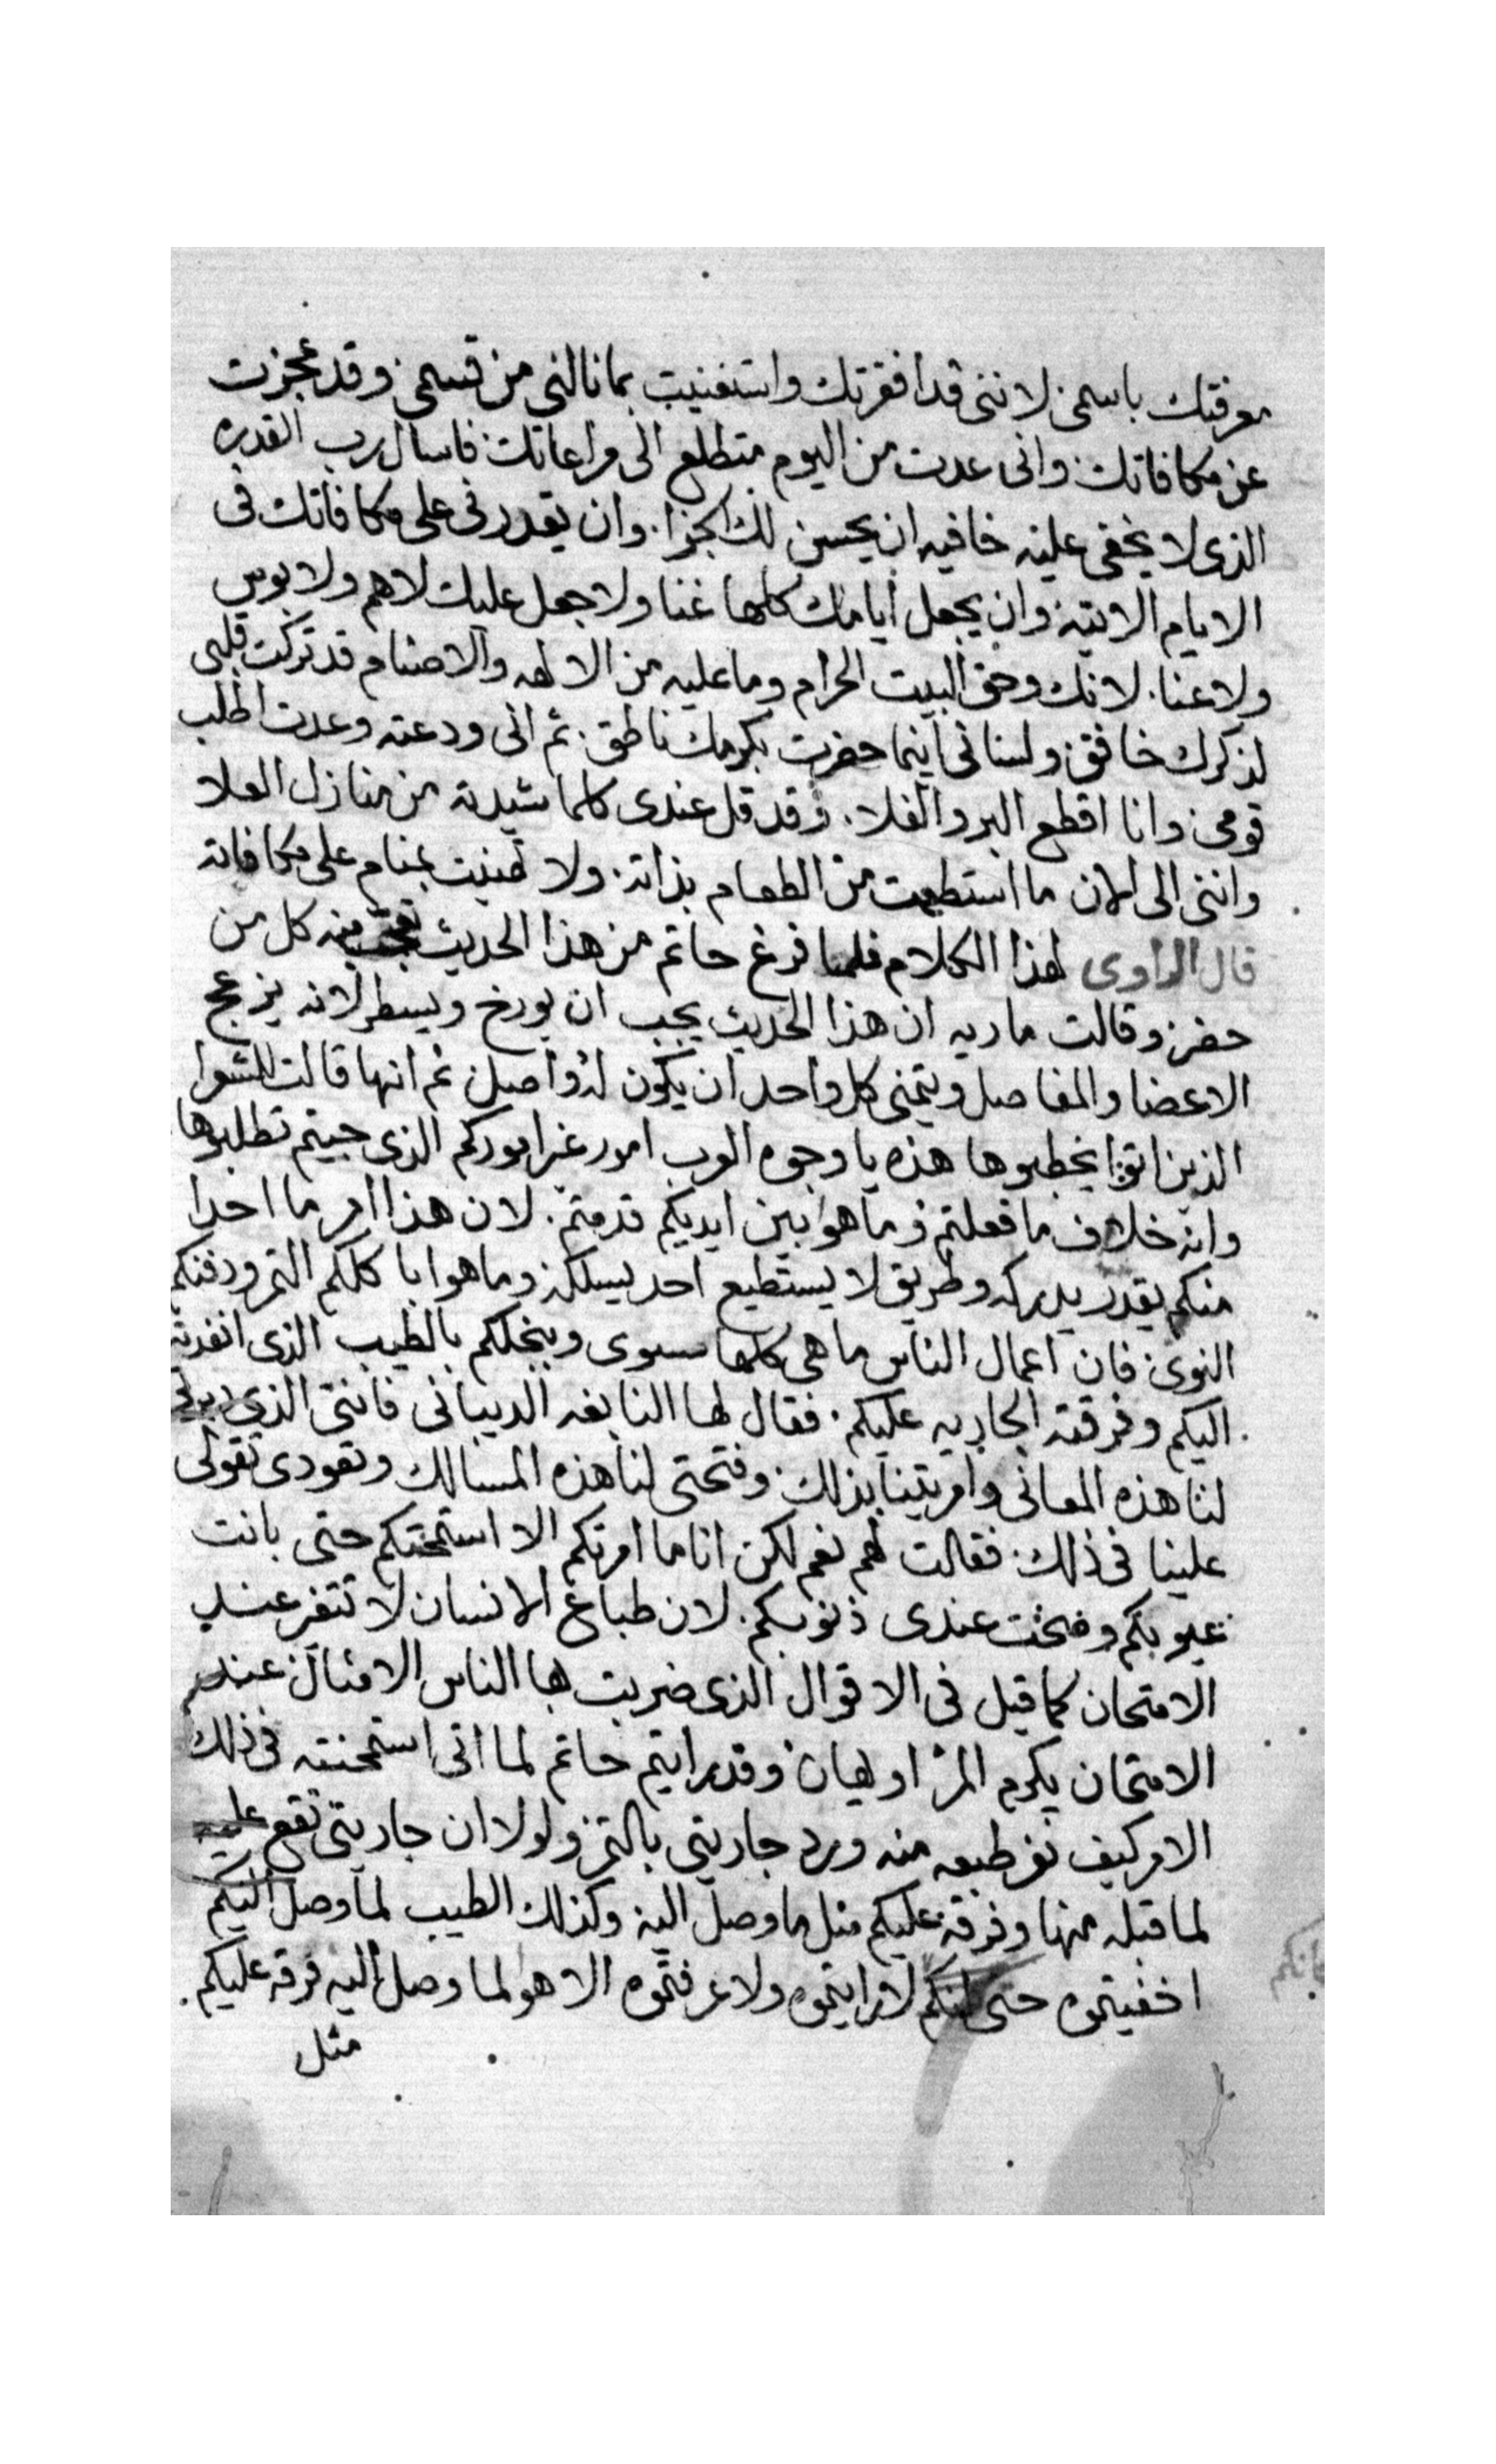 معرفتك باسمى لاننى قد افقرتك واستغنيت بما نالنى من قسمى وقد عجزت
عن مكافاتك وانى عدت من اليوم متطلع الى مراعاتك فاسال رب القدره
الذى لا يخفى عليه خافيه ان يحسن لك الجزا وان يقدرنى على مكافاتك فى
الايام الاتيه وان يجعل ايامك كلها غنا ولا جعل عليك لا هم ولا بوس
ولا عنا لانك وحق البيت الحرام وما عليه من الالهه والاصنام قد تركت قلبى
لذكرك خافق ولسانى اينما حضرت بكرمك ناطق ثم انى ودعته وعدت اطلب
قومى وانا اقطع البر والفلا وقد قل عندى كلما شيدته من منازل العلا
واننى الى الان ما استطعمت من الطعام بذاته ولا تهنيت بمنام على مكافاته
قال الراوى لهذا الكلام فلما فرغ حاتم من هذا الحديث تعجب منه كل من
حضر وقالت ماريه ان هذا الحديث يجب ان يورخ ويسطر لانه يزعج
الاعضا والمفاصل ويتمنى كل واحد ان يكون له واصل ثم انها قالت للشعرا
الذين اتوا يخطبوها هذه يا وجوه العرب امور غير اموركم الذى جيتم تطلبوها
وانه خلاف ما فعلتم وما هوا بين ايديكم قدمتم لان هذا امر ما احدا
منكم يقدر يدركه وطريق لا يستطيع احد يسلكه وما هوا باكلكم التمر ودفنكم
النوى فان اعمال الناس ما هى كلها سوى وببخلكم بالطيب الذى انفدته
اليكم وفرقته الجاريه عليكم فقال لها النابغه الديبانى فانتى الذى
لنا هذه المعانى وامرتينا بذلك وفتحتى لنا هذه المسالك وتعودى تقولى
علينا فى ذلك فقالت لهم نعم لكن انا ما امرتكم الا استمحنتكم حتى بانت
عيوبكم وضحت عندى ذنوبكم لان طباع الانسان لا تتغير عند
الامتحان كما قيل فى الاقوال الذى ضربت بها الناس الامثال عند
الامتحان يكرم المرء او يهان وقد رايتم حاتم لما انى استمحنته فى ذلك
الامر كيف نفر طبعه منه ورد جاريتى بالتمر ولولا ان جاريتى تقع عليه
لما قبله منها وفرقه عليكم مثل ما وصل اليه وكذلك الطيب لما وصل اليكم
اخفيتموه حتى لانكم لا رايتموه ولا عرفتموه الا هو لما وصل اليه فرقه عليكم
مثل